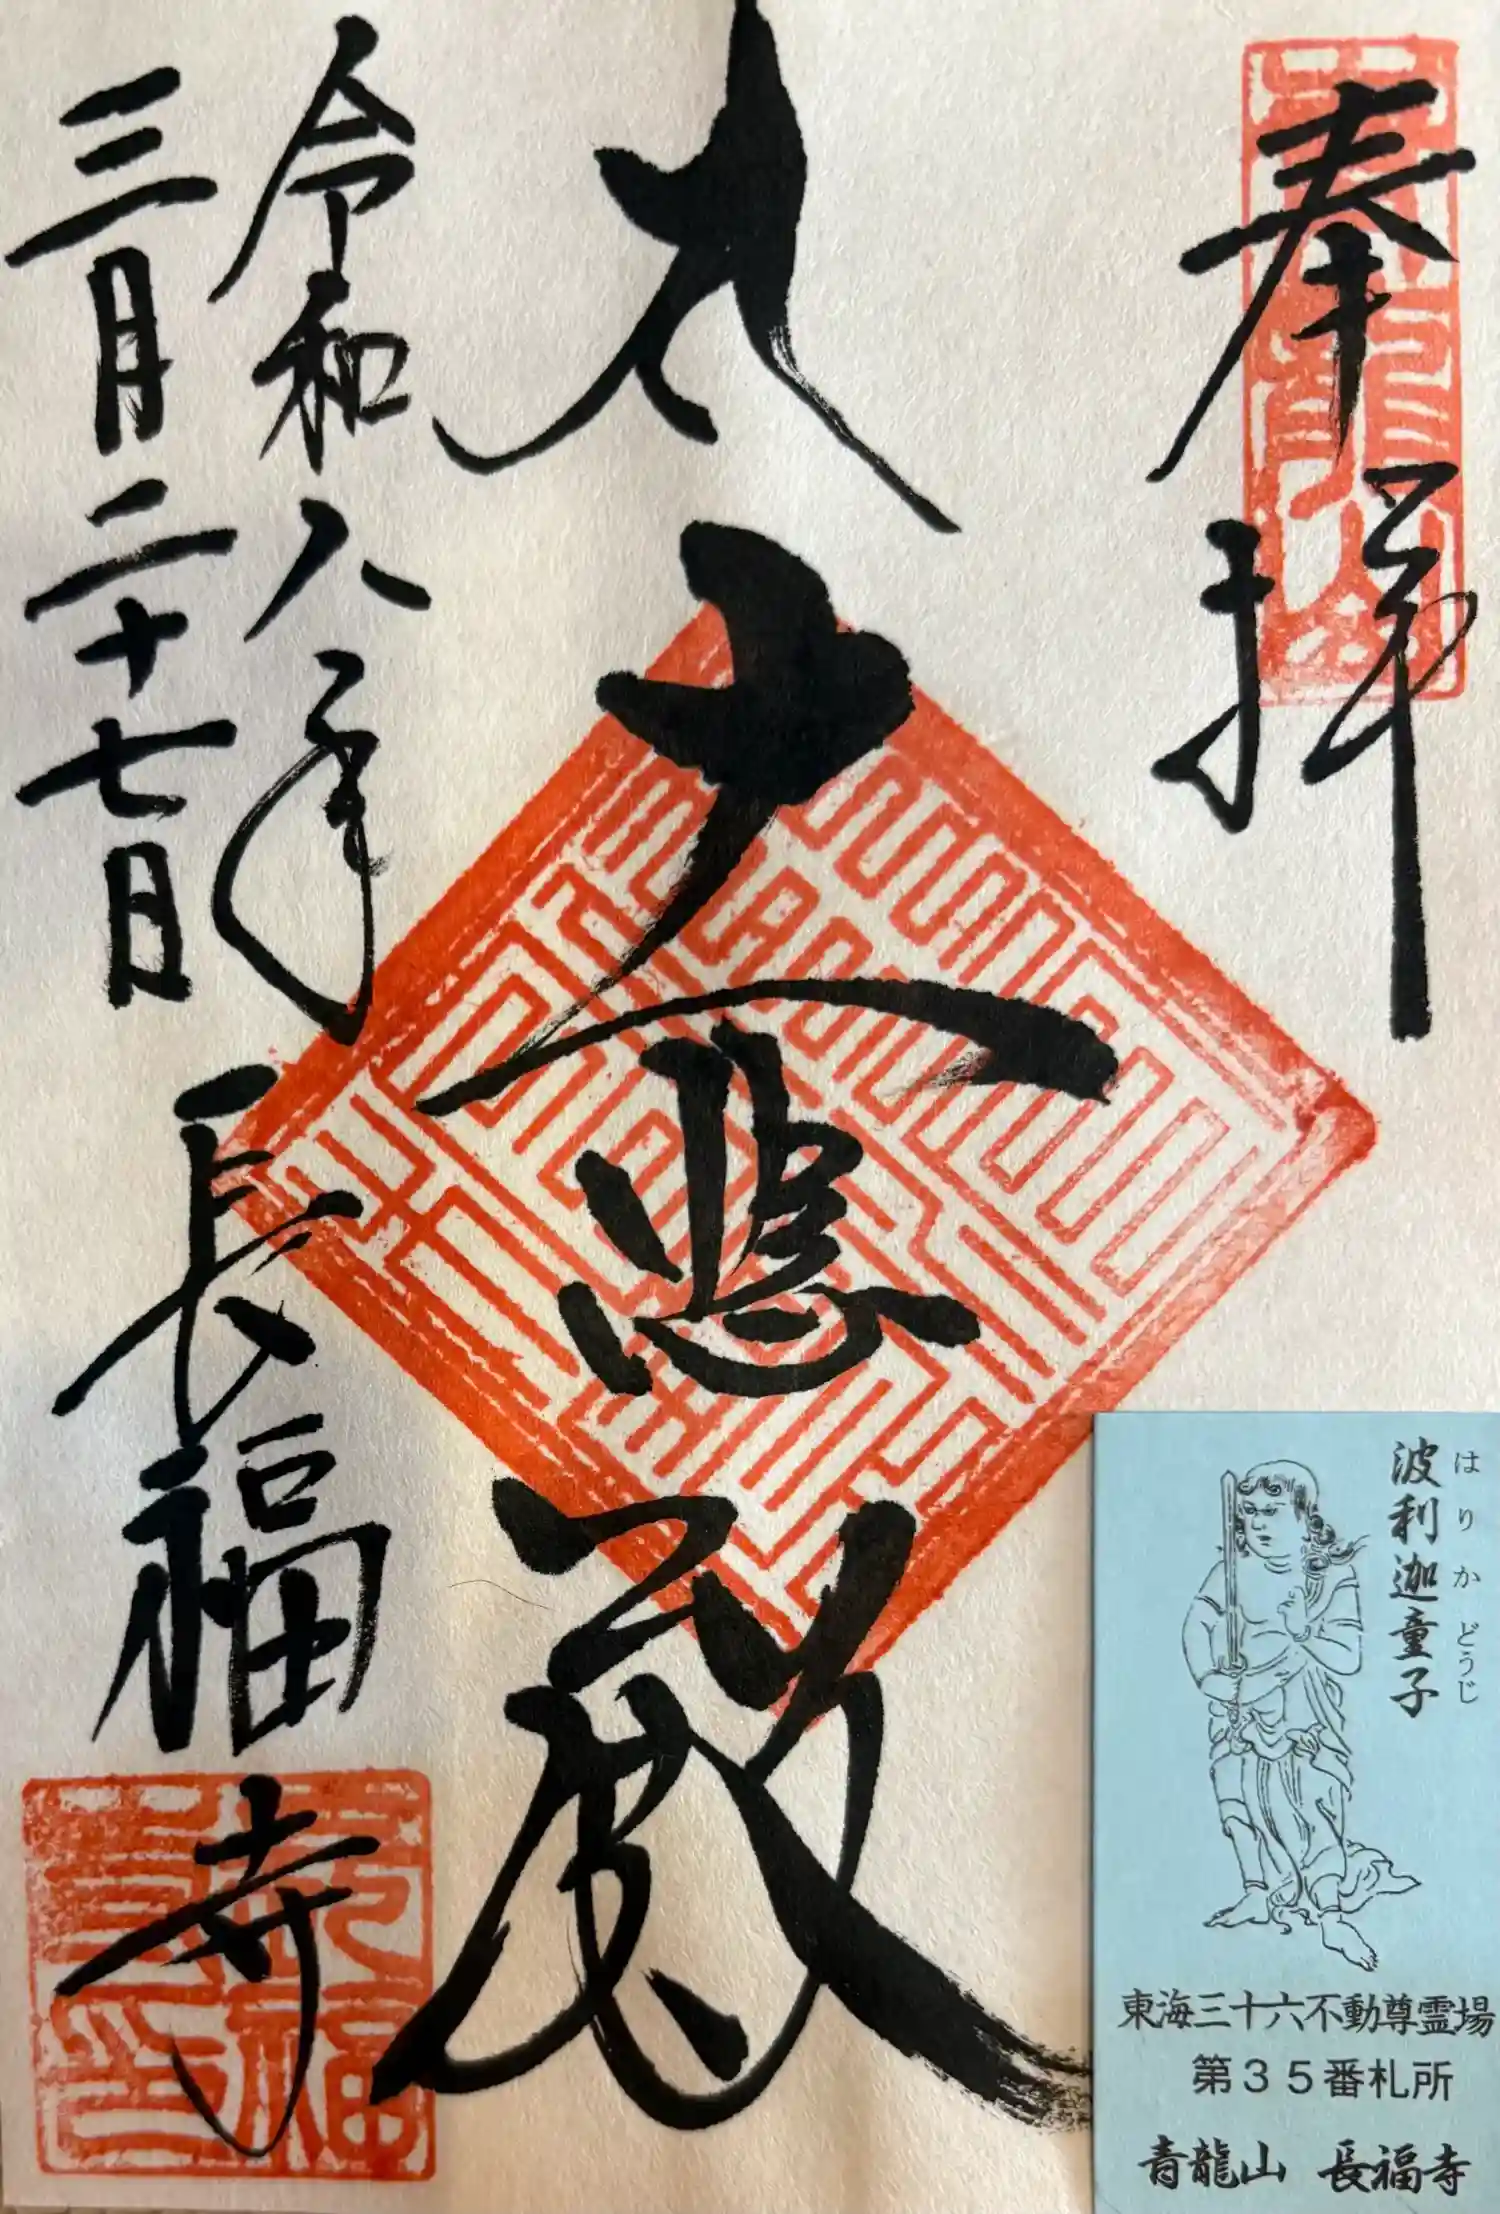 奉拝
青龍山
大悲殿
令和八年
三月二十七日
長福寺
波利迦童子
はりかどうじ
東海三十六不動尊霊場
第35番札所
青龍山 長福寺